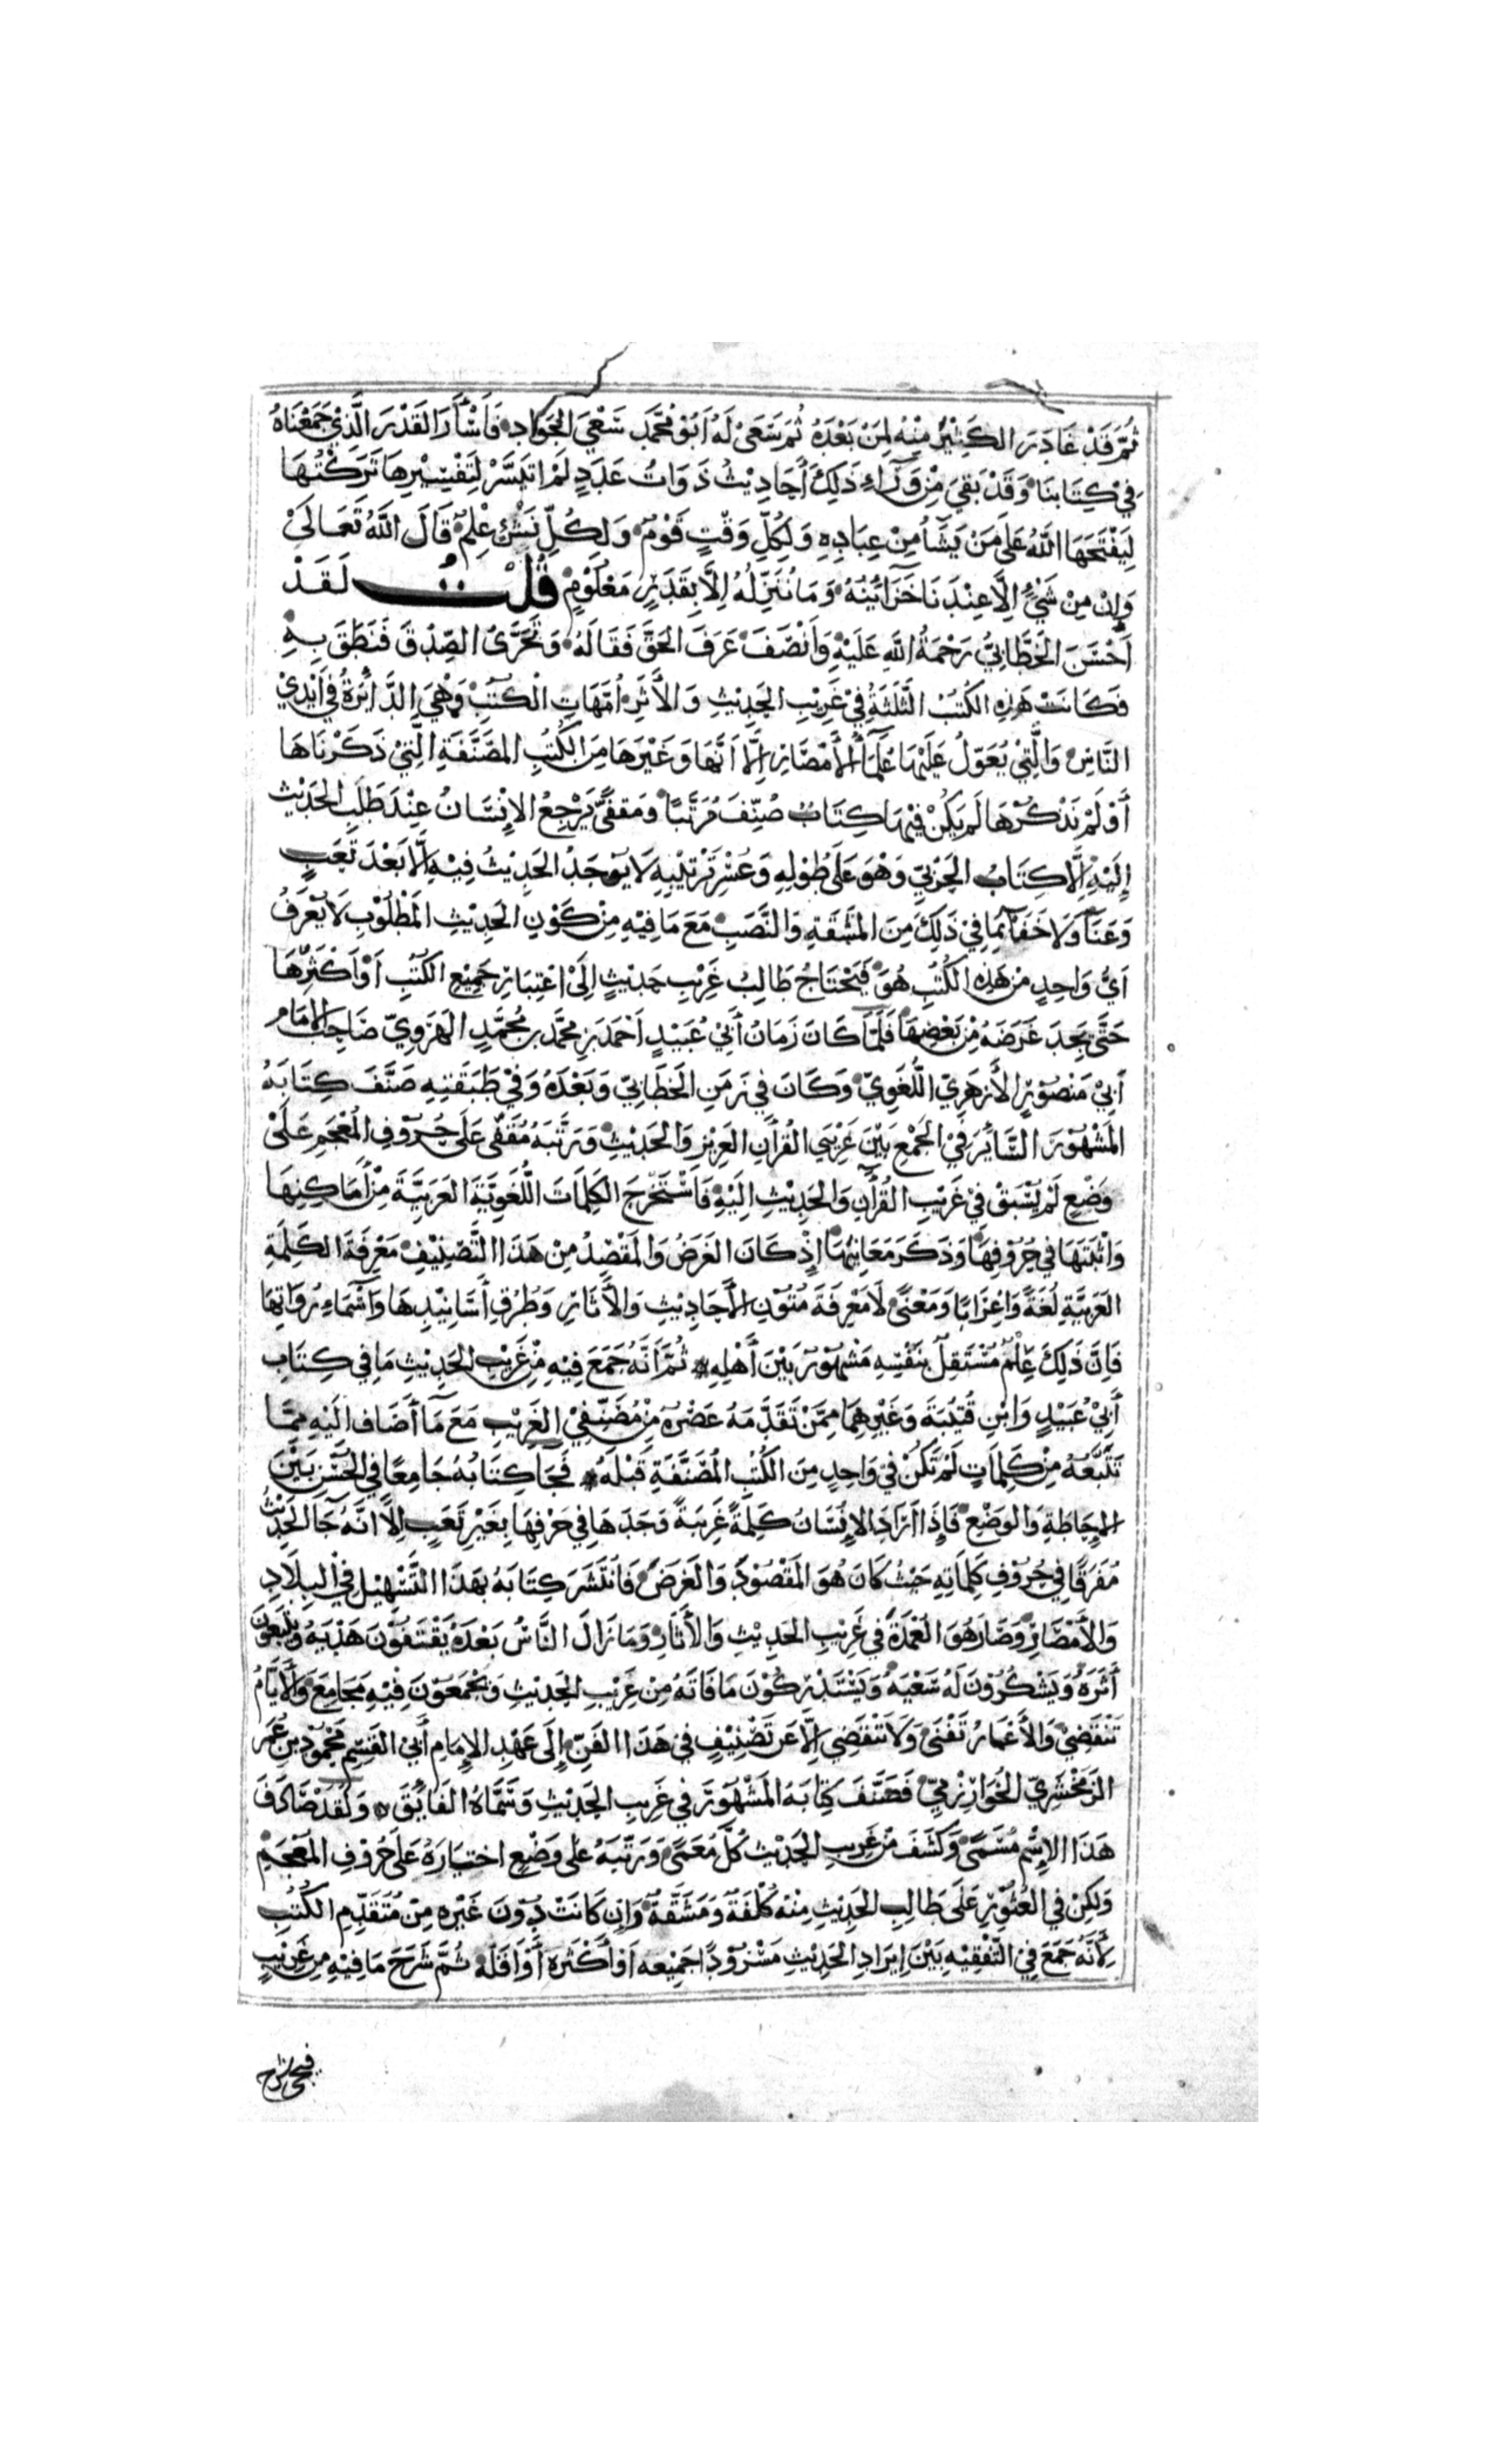 ثُمَّ قَدْ غَادَرَ الكَثِيْرَ مِنْهُ لِمَنْ بَعْدَهُ ثُمَّ سَعَىْ لَهُ اَبُوْ مُحَمَّدٍ سَعْيَ الجَوَادِ فَاَسْأَرَ القَدْرَ الَّذِيْ جَمَعْنَاهُ
فِيْ كِتَابِنَا وَقَدْ بَقِيَ مِنْ وَرَآءِ ذَلِكَ أَحَادِيْثُ ذَوَاتُ عَدَدٍ لَمْ اتَيَسَّرْ لِتَفْسِيْرِهَا تَرَكْتُهَا
لِيَفْتَحَهَا اللّٰهُ عَلَى مَنْ يَشَآءُ مِنْ عِبَادِهِ وَلِكُلِّ وَقْتٍ قَوْمٌ وَلِكُلِّ نَشْئٍ عِلْمٌ قَالَ اللّٰهُ تَعَالَىْ
وَاِنْ مِنْ شَيْءٍ اِلَّا عِنْدَنَا خَزَائِنُهُ وَمَا نُنَزِّلُهُ اِلَّا بِقَدَرٍ مَعْلُوْمٍ قُلْتُ لَقَدْ
اَحْسَنَ الخَطَّابِيُّ رَحْمَةُ اللّٰهِ عَلَيْهِ وَاَنْصَفَ عَرَفَ الحَقَّ فَقَالَهُ وَتَحَرَّىْ الصِّدْقَ فَنَطَقَ بِهِ
فَكَانَتْ هٰذِهِ الكُتُبُ الثَّلٰثَةُ فِيْ غَرِيْبِ الحَدِيْثِ وَالأَثَرِ اُمَّهَاتِ الْكُتُبِ وَهْيَ الدَّائِرَةُ فِيْ اَيْدِيْ
النَّاسِ وَالَّتِيْ يُعَوِّلُ عَلَيْهَا عُلَمَآءُ الأَمْصَارِ اِلَّا اَنَّهَا وَغَيْرَهَا مِنَ الكُتُبِ المُصَنَّفَةِ الَّتِيْ ذَكَرْنَاهَا
أَوْ لَمْ نَذْكُرْهَا لَمْ يَكُنْ فِيْهَا كِتَابٌ صُنِّفَ مُرَتَّبًا وَمُقَفًّى يَرْجِعُ الاِنْسَانُ عِنْدَ طَلَبِ الحَدِيْثِ
إِلَيْهِ إِلَّا كِتَابُ الحَرْبِيِّ وَهْوَ عَلَى طُوْلِهِ وَعُسْرِ تَرْتِيْبِهِ لَا يُوْجَدُ الحَدِيْثُ فِيْهِ إِلَّا بَعْدَ تَعَبٍ
وَعَنَآءٍ وَلَا خَفَآءَ بِمَا فِيْ ذَلِكَ مِنَ المَشَقَّةِ وَالنَّصَبِ مَعَ مَا فِيْهِ مِنْ كَوْنِ الحَدِيْثِ المَطْلُوْبِ لَا يُعْرَفُ
اَيُّ وَاحِدٍ مِنْ هٰذِهِ الكُتُبِ هُوَ فَيَحْتَاجُ طَالِبُ غَرِيْبِ حَدِيْثٍ اِلَىْ اعْتِبَارِ جَمِيْعِ الكُتُبِ اَوْ اَكْثَرِهَا
حَتَّى يَجِدَ غَرَضَهُ مِنْ بَعْضِهَا فَلَمَّا كَانَ زَمَانُ أَبِيْ عُبَيْدٍ اَحْمَدَ بْنِ مُحَمَّدِ بْنِ مُحَمَّدٍ الهَرَوِيِّ صَاحِبِ الاِمَامِ
أَبِيْ مَنْصُوْرٍ الأَزْهَرِيِّ اللُّغَوِيِّ وَكَانَ فِيْ زَمَنِ الخَطَّابِيِّ وَبَعْدَهُ وَفِيْ طَبَقَتِهِ صَنَّفَ كِتَابَهُ
المَشْهُوْرَ السَّائِرَ فِيْ الجَمْعِ بَيْنَ غَرِيْبَيِ القُرْاٰنِ العَزِيْزِ وَالحَدِيْثِ وَرَتَّبَهُ مُقَفًّى عَلَى حُرُوْفِ المُعْجَمِ عَلَىْ
وَضْعٍ لَمْ يُسْبَقْ فِيْ غَرِيْبِ القُرْاٰنِ وَالحَدِيْثِ اِلَيْهِ فَاسْتَخْرَجَ الكَلِمَاتِ اللُّغَوِيَّةَ العَرَبِيَّةَ مِنْ أَمَاكِنِهَا
وَاَثْبَتَهَا فِيْ حُرُوْفِهَا وَذَكَرَ مَعَانِيْهَا اِذْ كَانَ الغَرَضُ وَالمَقْصِدُ مِنْ هَذَا التَّصْنِيْفِ مَعْرِفَةَ الكَلِمَةِ
العَرَبِيَّةِ لُغَةً وَاِعْرَابًا وَمَعْنًى لَا مَعْرِفَةَ مُتُوْنِ الأَحَادِيْثِ وَالأٰثَارِ وَطُرُقِ أَسَانِيْدِهَا وَاَسْمَاءِ رُوَاتِهَا
فَاِنَّ ذَلِكَ عِلْمٌ مُسْتَقِلٌّ بِنَفْسِهِ مَشْهُوْرٌ بَيْنَ أَهْلِهِ ثُمَّ أَنَّهُ جَمَعَ فِيْهِ مِنْ غَرِيْبِ الحَدِيْثِ مَا فِي كِتَابِ
أَبِيْ عُبَيْدٍ وَابْنِ قُتَيْبَةَ وَغَيْرِهِمَا مِمَّنْ تَقَدَّمَهُ عَصْرُهُ مِنْ مُصَنِّفِيْ الغَرِيْبِ مَعَ مَآ أَضَافَ اِلَيْهِ مِمَّا
تَتَبَّعَهُ مِنْ كَلِمَاتٍ لَمْ تَكُنْ فِيْ وَاحِدٍ مِنَ الكُتُبِ المُصَنَّفَةِ قَبْلَهُ فَجَآءَ كِتَابُهُ جَامِعًا فِي الحُسْنِ بَيْنَ
الاِحَاطَةِ وَالوَضْعِ فَإِذَا اَرَادَ الاِنْسَانُ كَلِمَةً غَرِيْبَةً وَجَدَهَا فِيْ حَرْفِهَا بِغَيْرِ تَعَبٍ اِلَّا اَنَّهُ جَآءَ الحَدِيْثُ
مُفَرَّقًا فِيْ حُرُوْفِ كَلِمَاتِهِ حَيْثُ كَانَ هُوَ المَقْصُوْدَ وَالغَرَضَ فَانْتَشَرَ كِتَابُهُ بِهَذَا التَّسْهِيْلِ فِيْ البِلَادِ
وَالأَمْصَارِ وَصَارَ هُوَ العُمْدَةَ فِيْ غَرِيْبِ الحَدِيْثِ وَالأٰثَارِ وَمَا زَالَ النَّاسُ بَعْدَهُ يَقْتَفُوْنَ هَدْيَهُ وَيَتْبَعُوْنَ
أَثَرَهُ وَيَشْكُرُوْنَ لَهُ سَعْيَهُ وَيَسْتَدْرِكُوْنَ مَا فَاتَهُ مِنْ غَرِيْبِ الحَدِيْثِ وَيَجْمَعُوْنَ فِيْهِ مَجَامِعَ وَالأَيَّامُ
تَنْقَضِيْ وَالأَعْمَارُ تَفْنَىْ وَلَا تَنْقَضِيْ اِلَّا عَنْ تَصْنِيْفٍ فِيْ هَذَا الفَنِّ إِلَى عَهْدِ الإِمَامِ أَبِيْ القٰسِمِ مَحْمُوْدِ بْنِ عُمَرَ
الزَّمَخْشَرِيِّ الخُوَارَزْمِيِّ فَصَنَّفَ كِتَابَهُ المَشْهُوْرَ فِيْ غَرِيْبِ الحَدِيْثِ وَسَمَّاهُ الفَائِقَ وَلَقَدْ صَادَفَ
هَذَا الاِسْمُ مُسَمًّى وَكَشَفَ مِنْ غَرِيْبِ الحَدِيْثِ كُلَّ مُعَمًّى وَرَتَّبَهُ عَلَى وَضْعٍ اخْتَارَهُ عَلَى حُرُوْفِ المُعْجَمِ
وَلَكِنْ فِي العُثُوْرِ عَلَى طَالِبِ الحَدِيْثِ مِنْهُ كُلْفَةٌ وَمَشَقَّةٌ وَاِنْ كَانَتْ دُوْنَ غَيْرِهِ مِنْ مُتَقَدِّمِ الكُتُبِ
لِأَنَّهُ جَمَعَ فِيْ التَّقْفِيَةِ بَيْنَ إِيرَادِ الحَدِيْثِ مَسْرُوْدًا جَمِيْعِهِ اَوْ أَكْثَرِهِ أَوْ اَقَلِّهِ ثُمَّ شَرَحَ مَا فِيْهِ مِنْ غَرِيْبٍ